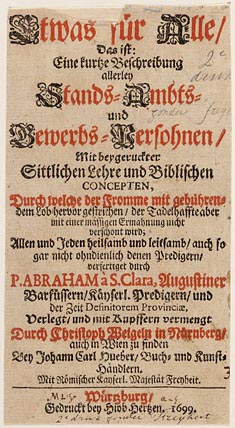 Etwas für Alle/
Das ist:
Eine kurtze Beschreibung
allerley
Stands-Ambts-
und
Gewerbs-Persohnen/
Mit beygeruckter
Sittlichen Lehre und Biblischen
CONCEPTEN,
Durch welche der Fromme mit gebühren-
dem Lob hervor gestrichen/ der Tadelhaffte aber
mit einer mässigen Ermahnung nicht
verschont wird;
Allen und Jeden heilsamb und leitsamb/ auch so
gar nicht ohndienlich denen Predigern/
verfertiget durch
P. ABRAHAM à S. Clara, Augustiner
Barfüssern/ Käyserl. Predigern/ und
der Zeit Definitorem Provinciæ,
Verlegt/ und mit Kupffern vermengt
Durch Christoph Weigeln in Nürnberg/
auch in Wien zu finden
Bey Johann Carl Hueber/ Buch- und Kunst-
Händlern.
Mit Römischer Kayserl. Majestät Freyheit.
Würtzburg/
Gedruckt bey Hiob Hertzen. 1699.